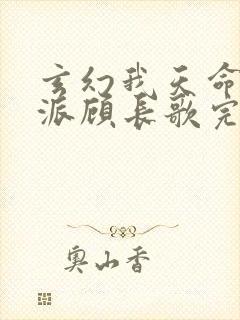 玄幻我天命
派顾长歌完
奥山香